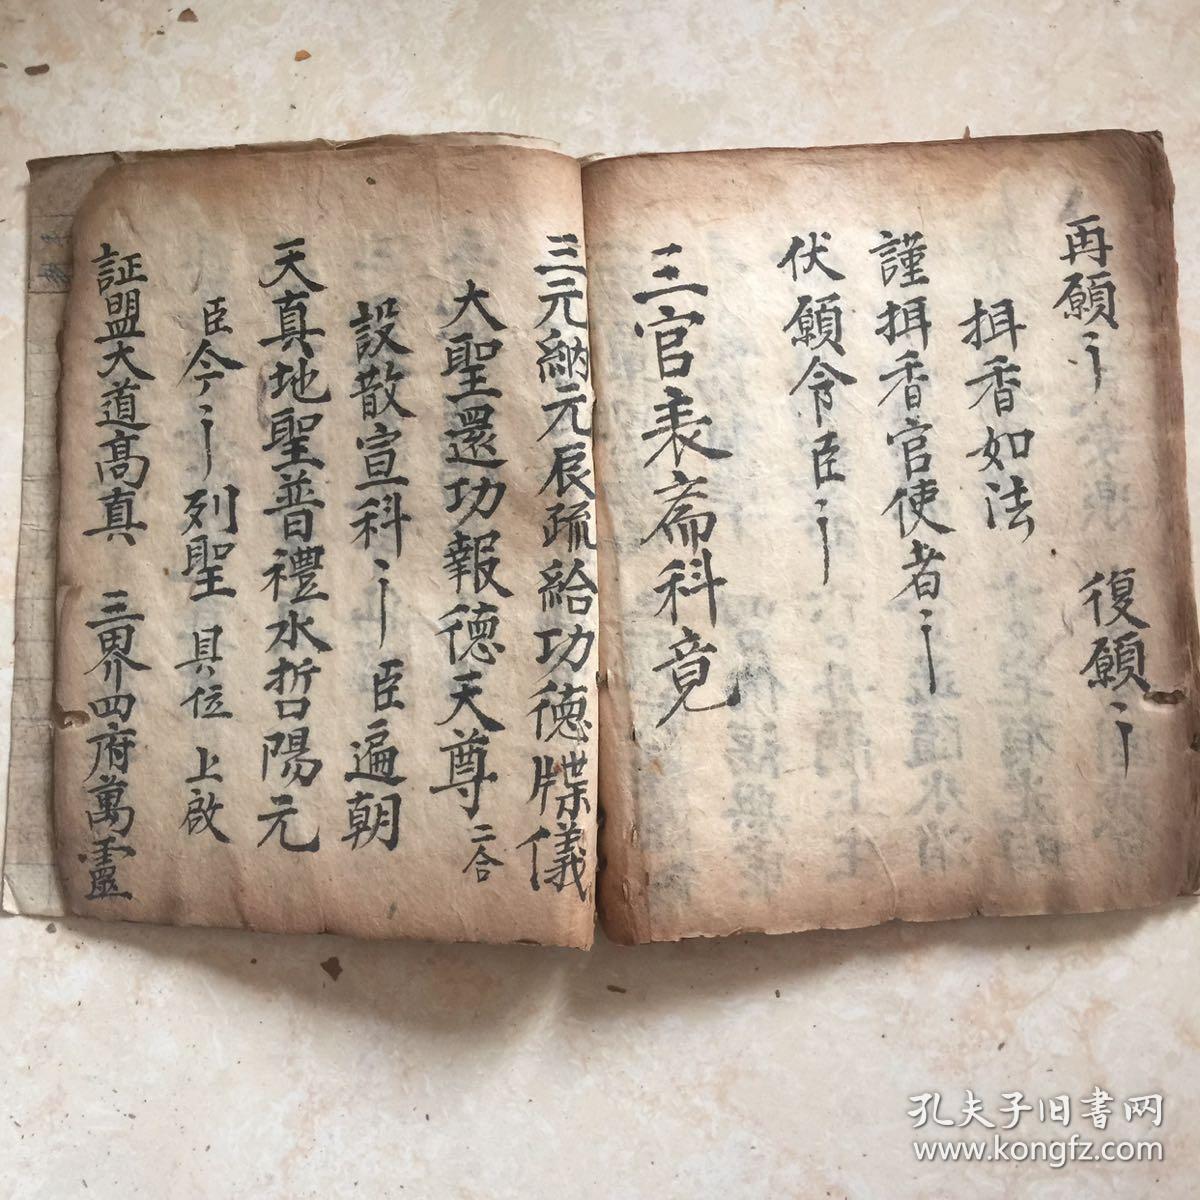 再願〻 復願〻
揖香如法
謹揖香官使者〻
伏願令臣〻
三官表斋科竟
三元納元辰疏給功德牒儀
大聖還功報德天尊 二合
設散宣科〻 臣遍朝
天真地聖普禮水哲陽元
臣今〻列聖 具位 上啟
証盟大道高真 三界四府萬靈
孔夫子旧書网
www.kongfz.com